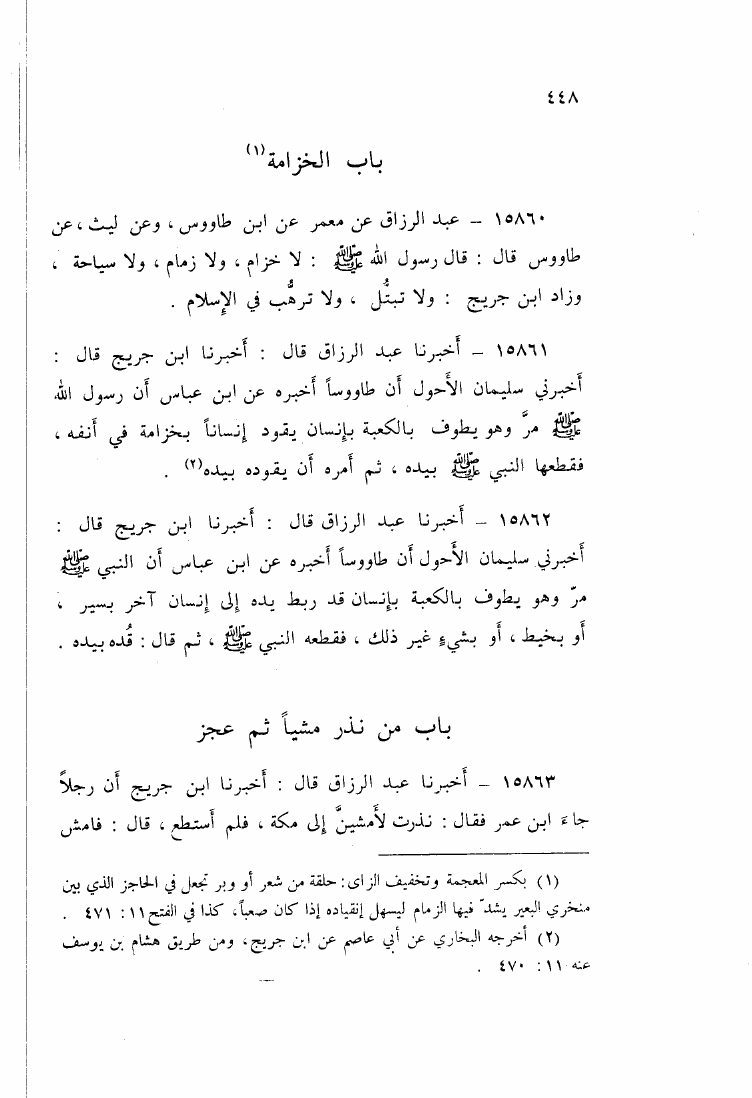 ٤٤٨
باب الخزامة(١)
١٥٨٦٠ – عبد الرزاق عن معمر عن ابن طاووس ، وعن ليث ، عن
طاووس قال : قال رسول الله ﷺ : لا خزام ، ولا زمام ، ولا سياحة ،
وزاد ابن جريج : ولا تبتُّل ، ولا ترهُّب في الإسلام .
١٥٨٦١ – أخبرنا عبد الرزاق قال : أخبرنا ابن جريج قال :
أخبرني سليمان الأحول أن طاووساً أخبره عن ابن عباس أن رسول الله
ﷺ مرَّ وهو يطوف بالكعبة بإنسان يقود إنساناً بخزامة في أنفه ،
فقطعها النبي ﷺ بيده ، ثم أمره أن يقوده بيده(٢) .
١٥٨٦٢ – أخبرنا عبد الرزاق قال : أخبرنا ابن جريج قال :
أخبرني سليمان الأحول أن طاووساً أخبره عن ابن عباس أن النبي ﷺ
مرّ وهو يطوف بالكعبة بإنسان قد ربط يده إلى إنسان آخر بسير ،
أو بخيط ، أو بشيءٍ غير ذلك ، فقطعه النبي ﷺ ، ثم قال : قُده بيده .
باب من نذر مشياً ثم عجز
١٥٨٦٣ – أخبرنا عبد الرزاق قال : أخبرنا ابن جريج أن رجلاً
جاءَ ابن عمر فقال : نذرت لأمشينَّ إلى مكة ، فلم أستطع ، قال : فامش
(١) بكسر المعجمة وتخفيف الزاى: حلقة من شعر أو وبر تجعل في الحاجز الذي بين
منخري البعير يشدّ فيها الزمام ليسهل إنقياده إذا كان صعباً، كذا في الفتح ١١: ٤٧١ .
(٢) أخرجه البخاري عن أبي عاصم عن ابن جريج، ومن طريق هشام بن يوسف
عنه ١١: ٤٧٠ .